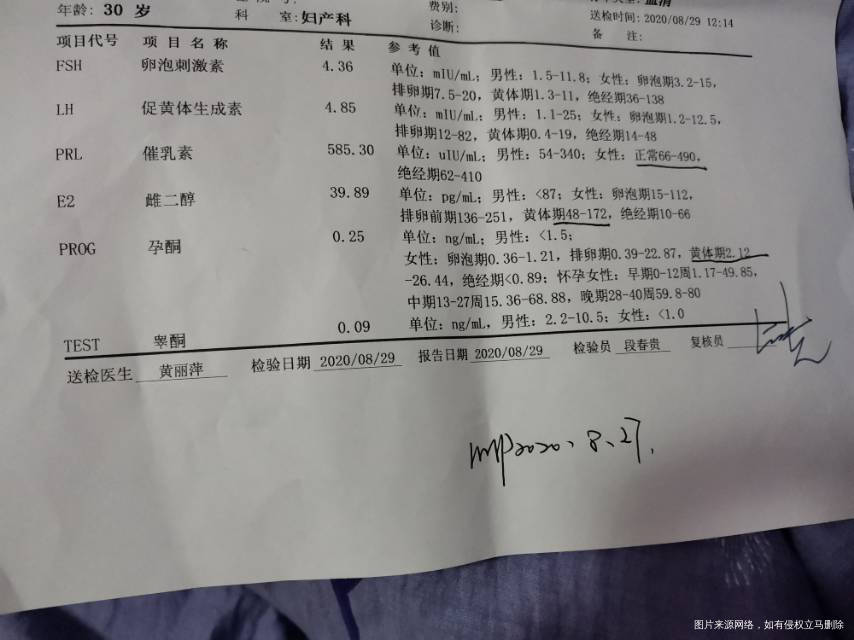 年龄: 30 岁
科 室:妇产科
费别:
诊断:
送检时间: 2020/08/29 12:14
备 注:
项目代号 项目名称 结果 参考值
FSH 卵泡刺激素 4.36 单位: mIU/mL; 男性: 1.5-11.8; 女性: 卵泡期3.2-15,
排卵期7.5-20, 黄体期1.3-11, 绝经期36-138
LH 促黄体生成素 4.85 单位: mIU/mL; 男性: 1.1-25; 女性: 卵泡期1.2-12.5,
排卵期12-82, 黄体期0.4-19, 绝经期14-48
PRL 催乳素 585.30 单位: uIU/mL; 男性: 54-340; 女性: 正常66-490,
绝经期62-410
E2 雌二醇 39.89 单位: pg/mL; 男性: <87; 女性: 卵泡期15-112,
排卵前期136-251, 黄体期48-172, 绝经期10-66
PROG 孕酮 0.25 单位: ng/mL; 男性: <1.5;
女性: 卵泡期0.36-1.21, 排卵期0.39-22.87, 黄体期2.12
-26.44, 绝经期<0.89; 怀孕女性: 早期0-12周1.17-49.85,
中期13-27周15.36-68.88, 晚期28-40周59.8-80
TEST 睾酮 0.09 单位: ng/mL, 男性: 2.2-10.5; 女性: <1.0
送检医生 黄丽萍 检验日期 2020/08/29 报告日期 2020/08/29 检验员 段春贵 复核员
mp2020、8、27.
图片来源网络,如有侵权立马删除